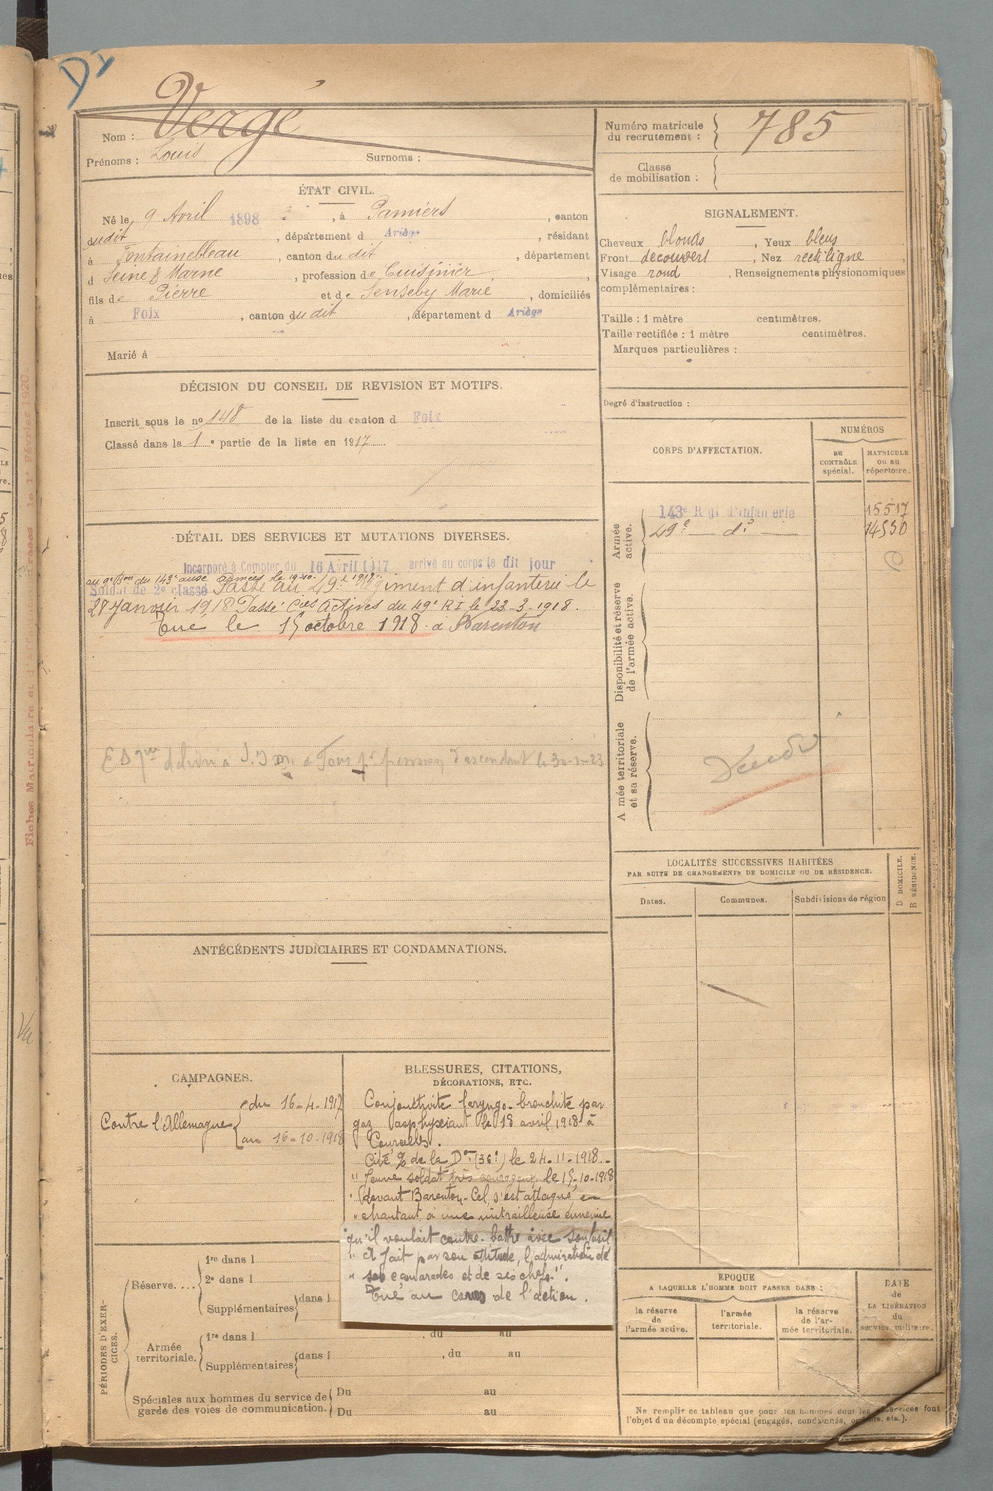 Dy
Nom : Vergé
Prénoms : Louis Surnoms :
Numéro matricule du recrutement : 785
Classe de mobilisation :
ÉTAT CIVIL.
Né le 9 Avril 1898, à Pamiers, canton
dudit, département d Ariège, résidant
à Fontainebleau, canton dudit, département
d Seine & Marne, profession de Cuisinier
fils de Pierre et de Senseby Marie, domiciliés
à Foix, canton dudit, département d Ariège
Marié à
SIGNALEMENT.
Cheveux blonds, Yeux bleus
Front découvert, Nez rectiligne
Visage rond, Renseignements physionomiques
complémentaires :
Taille : 1 mètre centimètres.
Taille rectifiée : 1 mètre centimètres.
Marques particulières :
Degré d'instruction :
DÉCISION DU CONSEIL DE REVISION ET MOTIFS.
Inscrit sous le nº 148 de la liste du canton d Foix
Classé dans la 1e partie de la liste en 1917
CORPS D'AFFECTATION.
NUMÉROS
AU CONTRÔLE spécial.
MATRICULE OU AU répertoire.
Armée active.
143e Régt d'infanterie 15517
49e — dº — 14550
Disponibilité et réserve de l'armée active.
Armée territoriale et sa réserve.
DÉTAIL DES SERVICES ET MUTATIONS DIVERSES.
Incorporé à Compter du 16 Avril 1917 arrivé au corps le dit jour
au 9e Bon du 143e aux armées le
Soldat de 2e classe Passé au 49e Régiment d'infanterie le
28 Janvier 1918 Passé Cies Actives du 49e R I le 23-3-1918.
Tué le 15 octobre 1918 à Barenton
à Tours pr pension d'ascendant le
Fiches Matriculaire
1er Février 1920
LOCALITÉS SUCCESSIVES HABITÉES
PAR SUITE DE CHANGEMENTS DE DOMICILE OU DE RÉSIDENCE.
Dates. Communes. Subdivisions de région
D DOMICILE. R RÉSIDENCE.
ANTÉCÉDENTS JUDICIAIRES ET CONDAMNATIONS.
CAMPAGNES.
Contre l'Allemagne
du 16-4-1917
au 16-10-1918
BLESSURES, CITATIONS,
DÉCORATIONS, ETC.
Conjonctivite laryngo-bronchite par
gaz asphyxiant le 18 avril 1918 à
Courcelles.
Cité O/ de la Don (36e) le 24-11-1918
" Jeune soldat très courageux le 15-10-1918
" devant Barenton-Cel, s'est attaqué en
" chantant à une mitrailleuse ennemie
" qu'il voulait contre-battre avec son fusil
" et fait par son attitude, l'admiration de
" ses camarades et de ses chefs".
Tué au cours de l'action.
PÉRIODES D'EXERCICES.
Réserve....
1re dans l
2e dans l
Supplémentaires dans l
Armée territoriale.
1re dans l , du au
Supplémentaires dans l , du au
Spéciales aux hommes du service de garde des voies de communication.
Du au
Du au
ÉPOQUE
A LAQUELLE L'HOMME DOIT PASSER DANS :
la réserve de l'armée active.
l'armée territoriale.
la réserve de l'armée territoriale.
DATE DE LA LIBÉRATION du service militaire.
Ne remplir ce tableau que pour les hommes dont les services font
l'objet d'un décompte spécial (engagés, condamnés, omis, etc.).